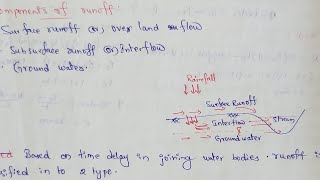 omponents of runoff
Surface runoff (or) over land flow
Subsurface runoff (or) Interflow
Ground water.
Rainfall
Surface Runoff
Interflow
Stream
Groundwater
Based on time delay in joining water bodies. runoff is
sified in to 2 type.